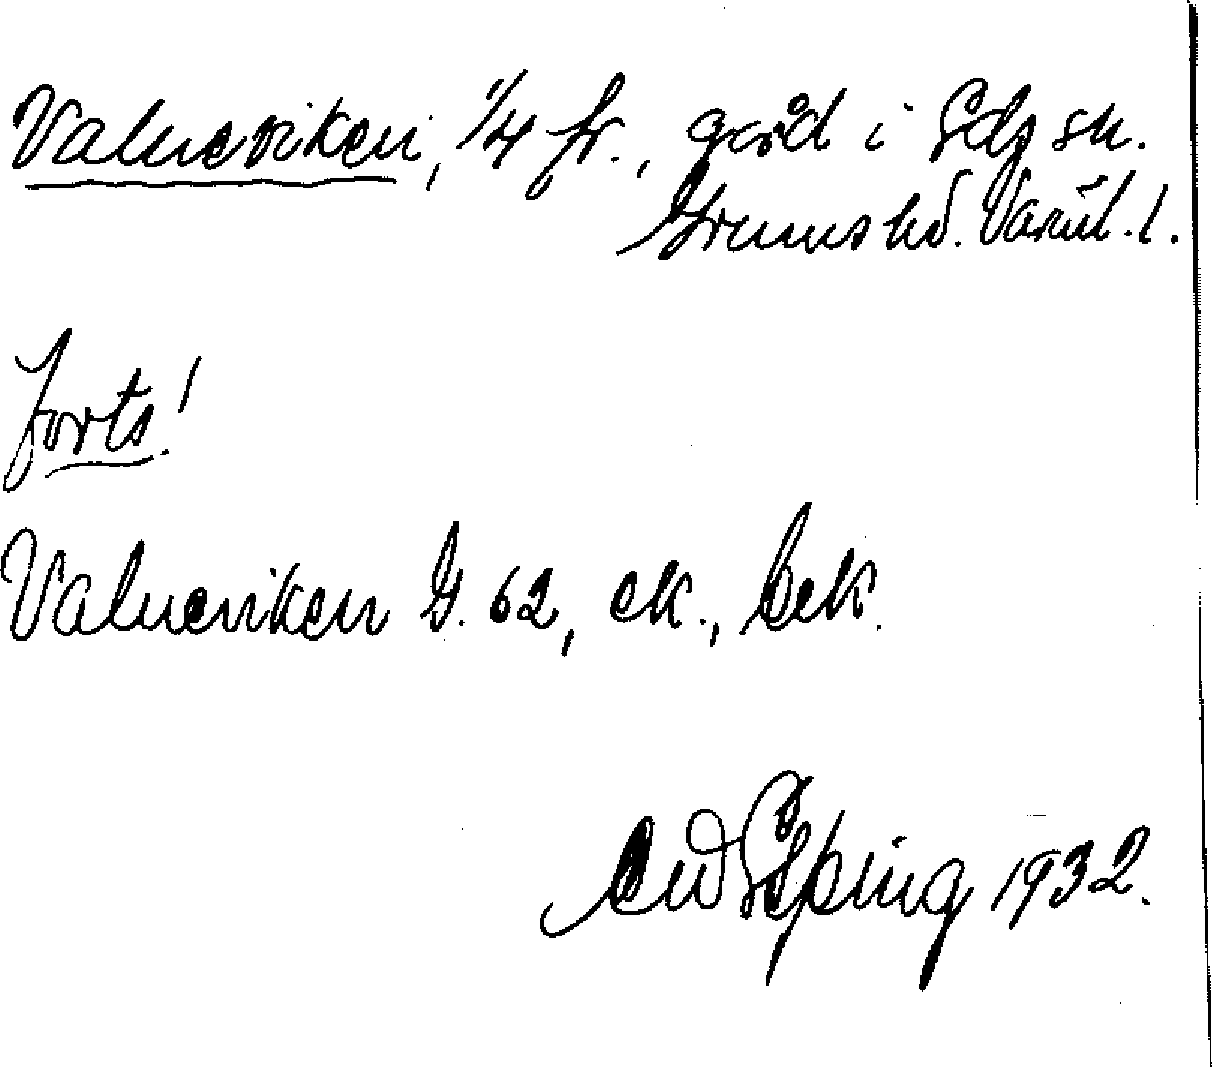 Valneviken, 1/4 fr., gård i Eds sn.
Grums hd. Värml. l.
forts!
Valneviken G. 62, ek., bek.
1932.